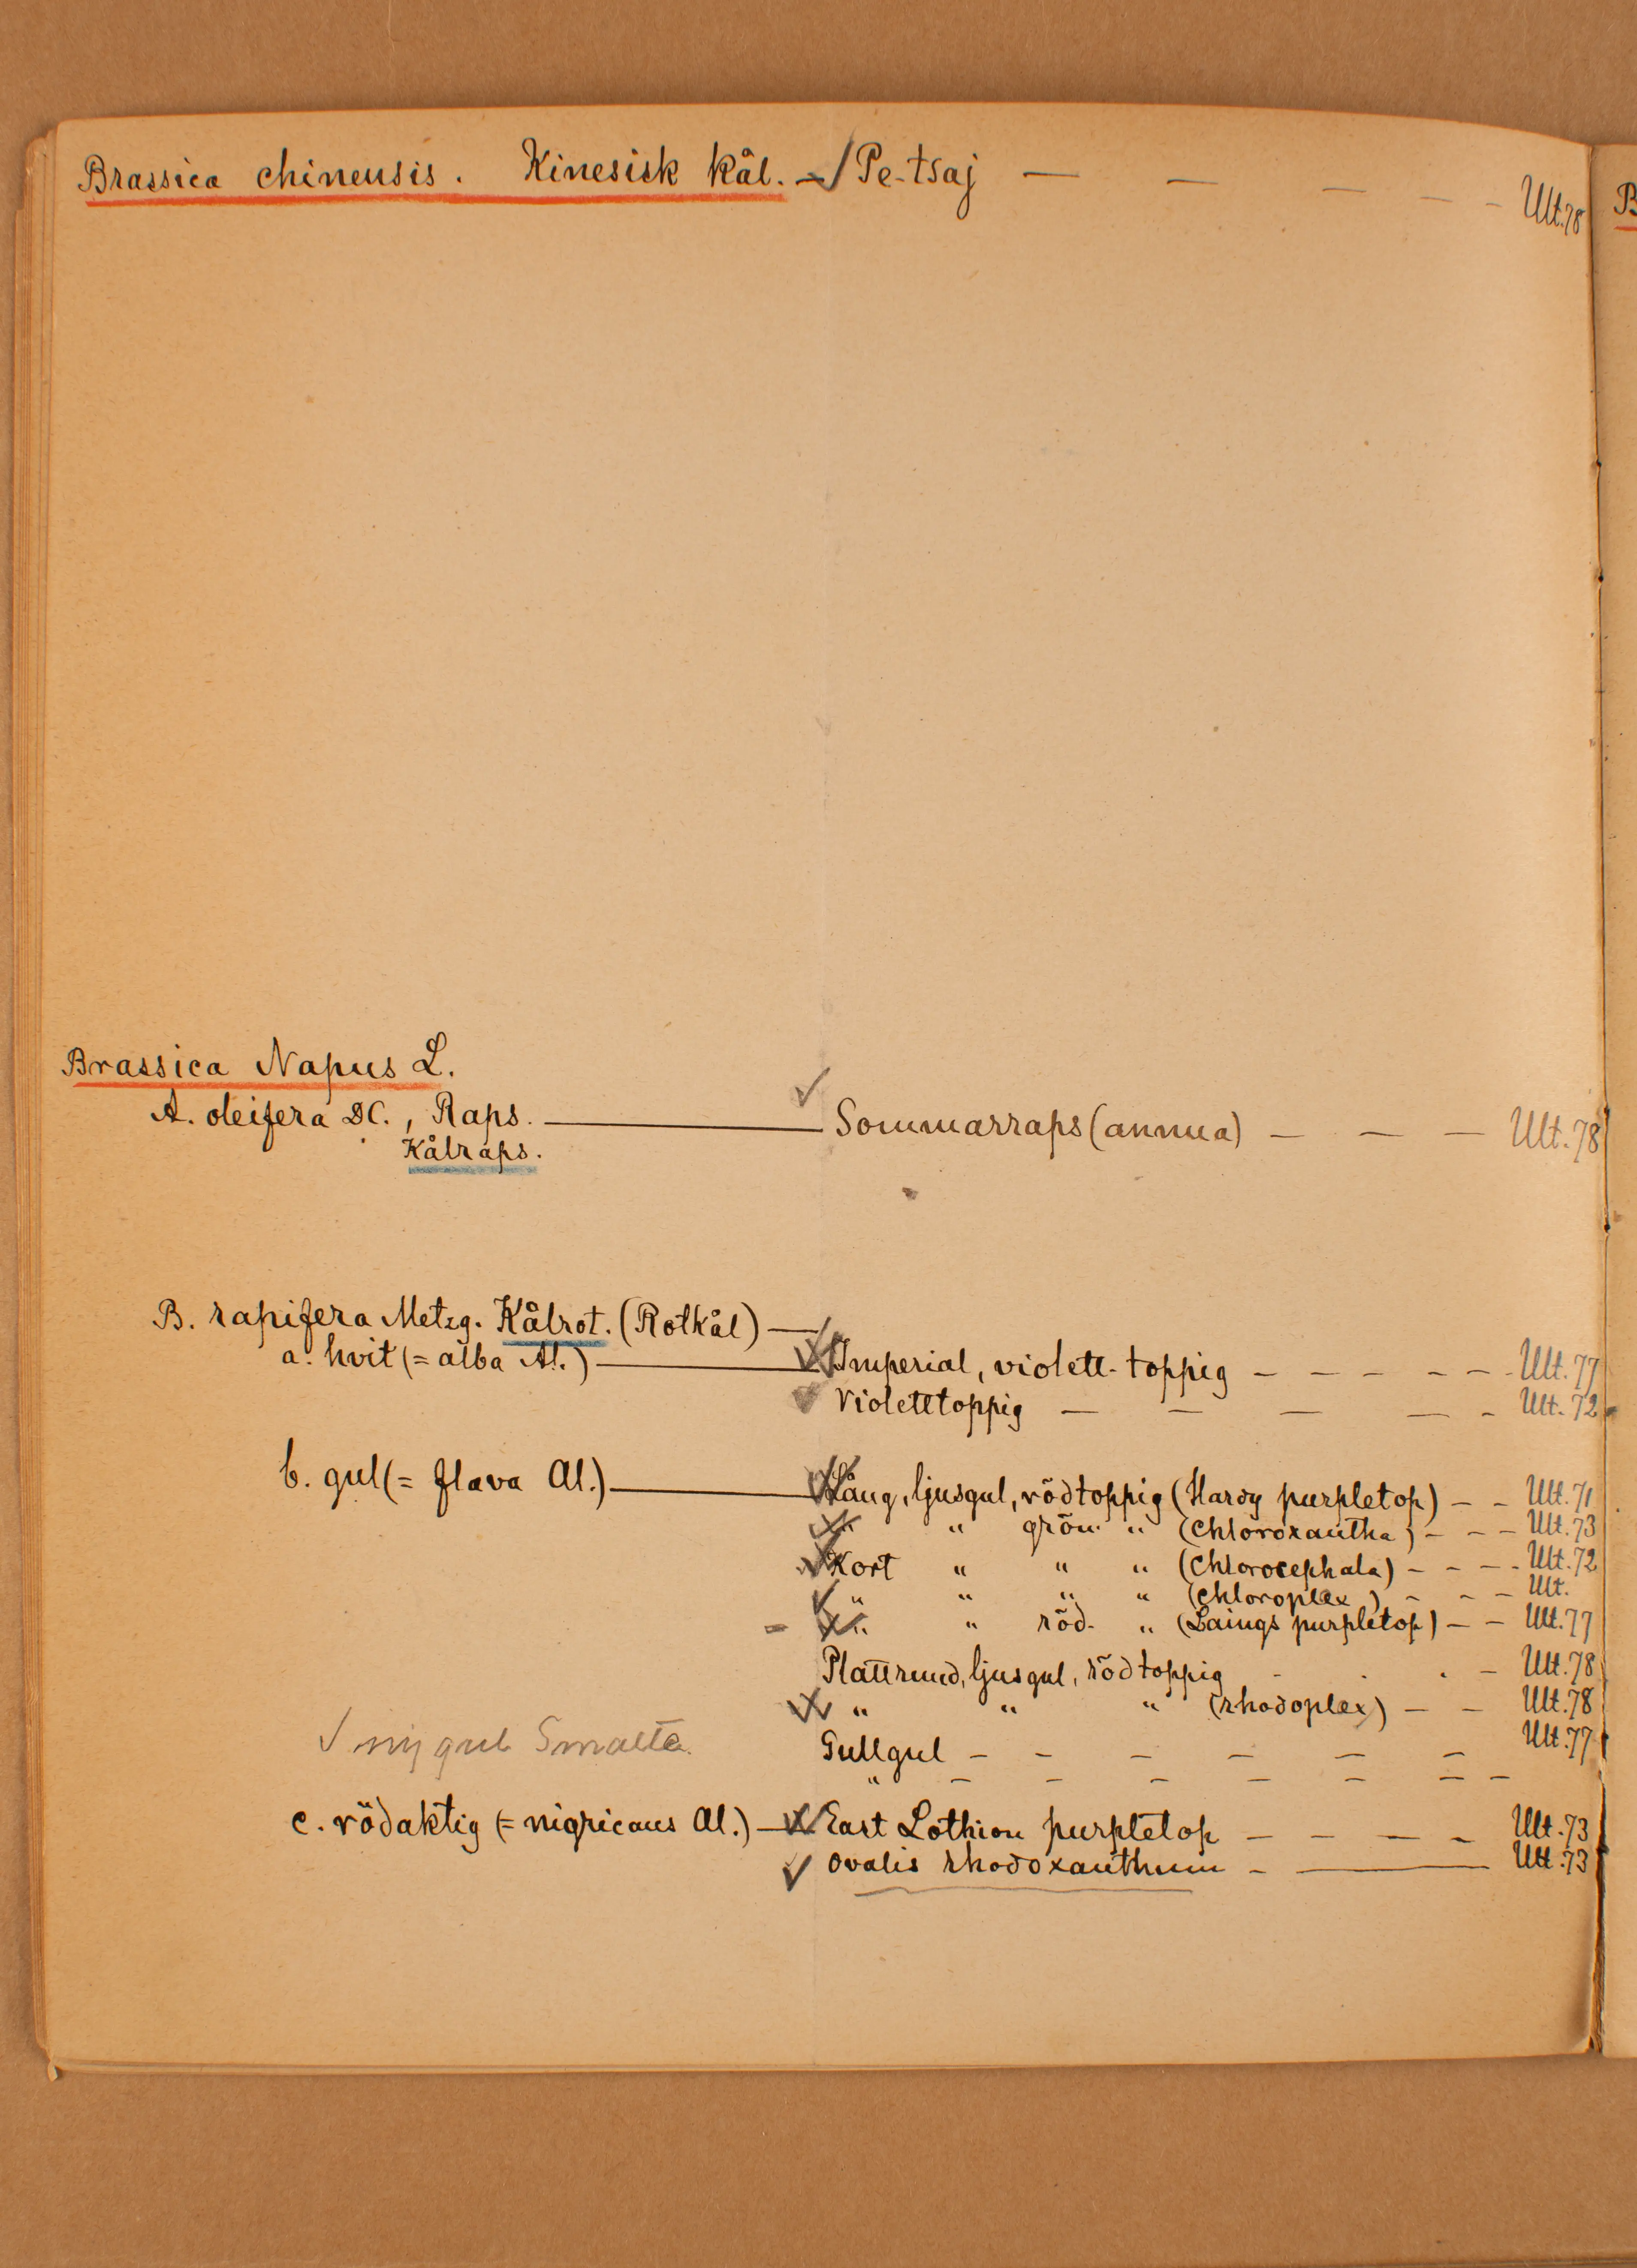 Brassica chinensis. Kinesisk kål. — Pe-tsaj — — — — — Ult. 78
B
Brassica Napus L.
A. oleifera DC., Raps. — Sommarraps (annua) — — — Ult. 78
Kålraps.
B. rapifera Metzg. Kålrot. (Rotkål) —
a. hvit (= alba Al.) — Imperial, violett-toppig — — — — — — Ult. 77
Violetttoppig — — — — — Ult. 72
b. gul (= flava Al.) — Lång, ljusgul, rödtoppig (Hardy purpletop) — — Ult. 71
" " grön- " (chloroxantha) — — — Ult. 73
Kort " " " (chlorocephala) — — — — Ult. 72
" " " " (chloroplex) — — — Ult.
" " röd- " (Laings purpletop) — — Ult. 77
Plattrund, ljusgul, rödtoppig - - - — Ult. 78
" " " (rhodoplex) — — Ult. 78
ny gul
Gullgul — — — — — — Ult. 77
" — — — — — — —
c. rödaktig (= nigricans Al.) — East Lothion purpletop — — — — Ult. 73
Ovalis rhodoxanthum — — Ult. 73